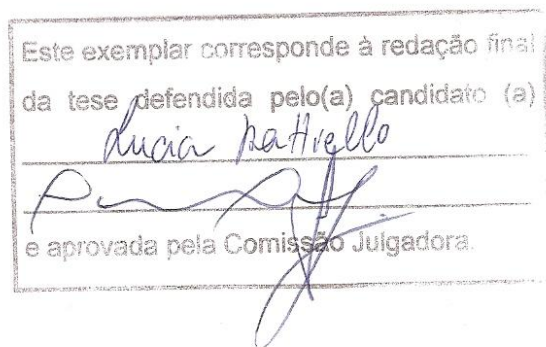 Este exemplar corresponde à redação final
da tese defendida pelo(a) candidato (a)
Lucia
e aprovada pela Comissão Julgadora.